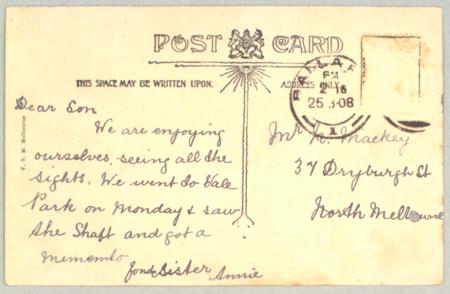 POST CARD
THIS SPACE MAY BE WRITTEN UPON.
ADDRESS ONLY
BALLAR
PM
2-15
25 3·08
1
V. S. M. Melbourne
Dear Son
We are enjoying
ourselves, seeing all the
sights. We went to Vale
Park on Monday & saw
the Shaft and got a
Memento
fond Sister Annie
Mr H. Mackey
37 Dryburgh St
North Melbourne